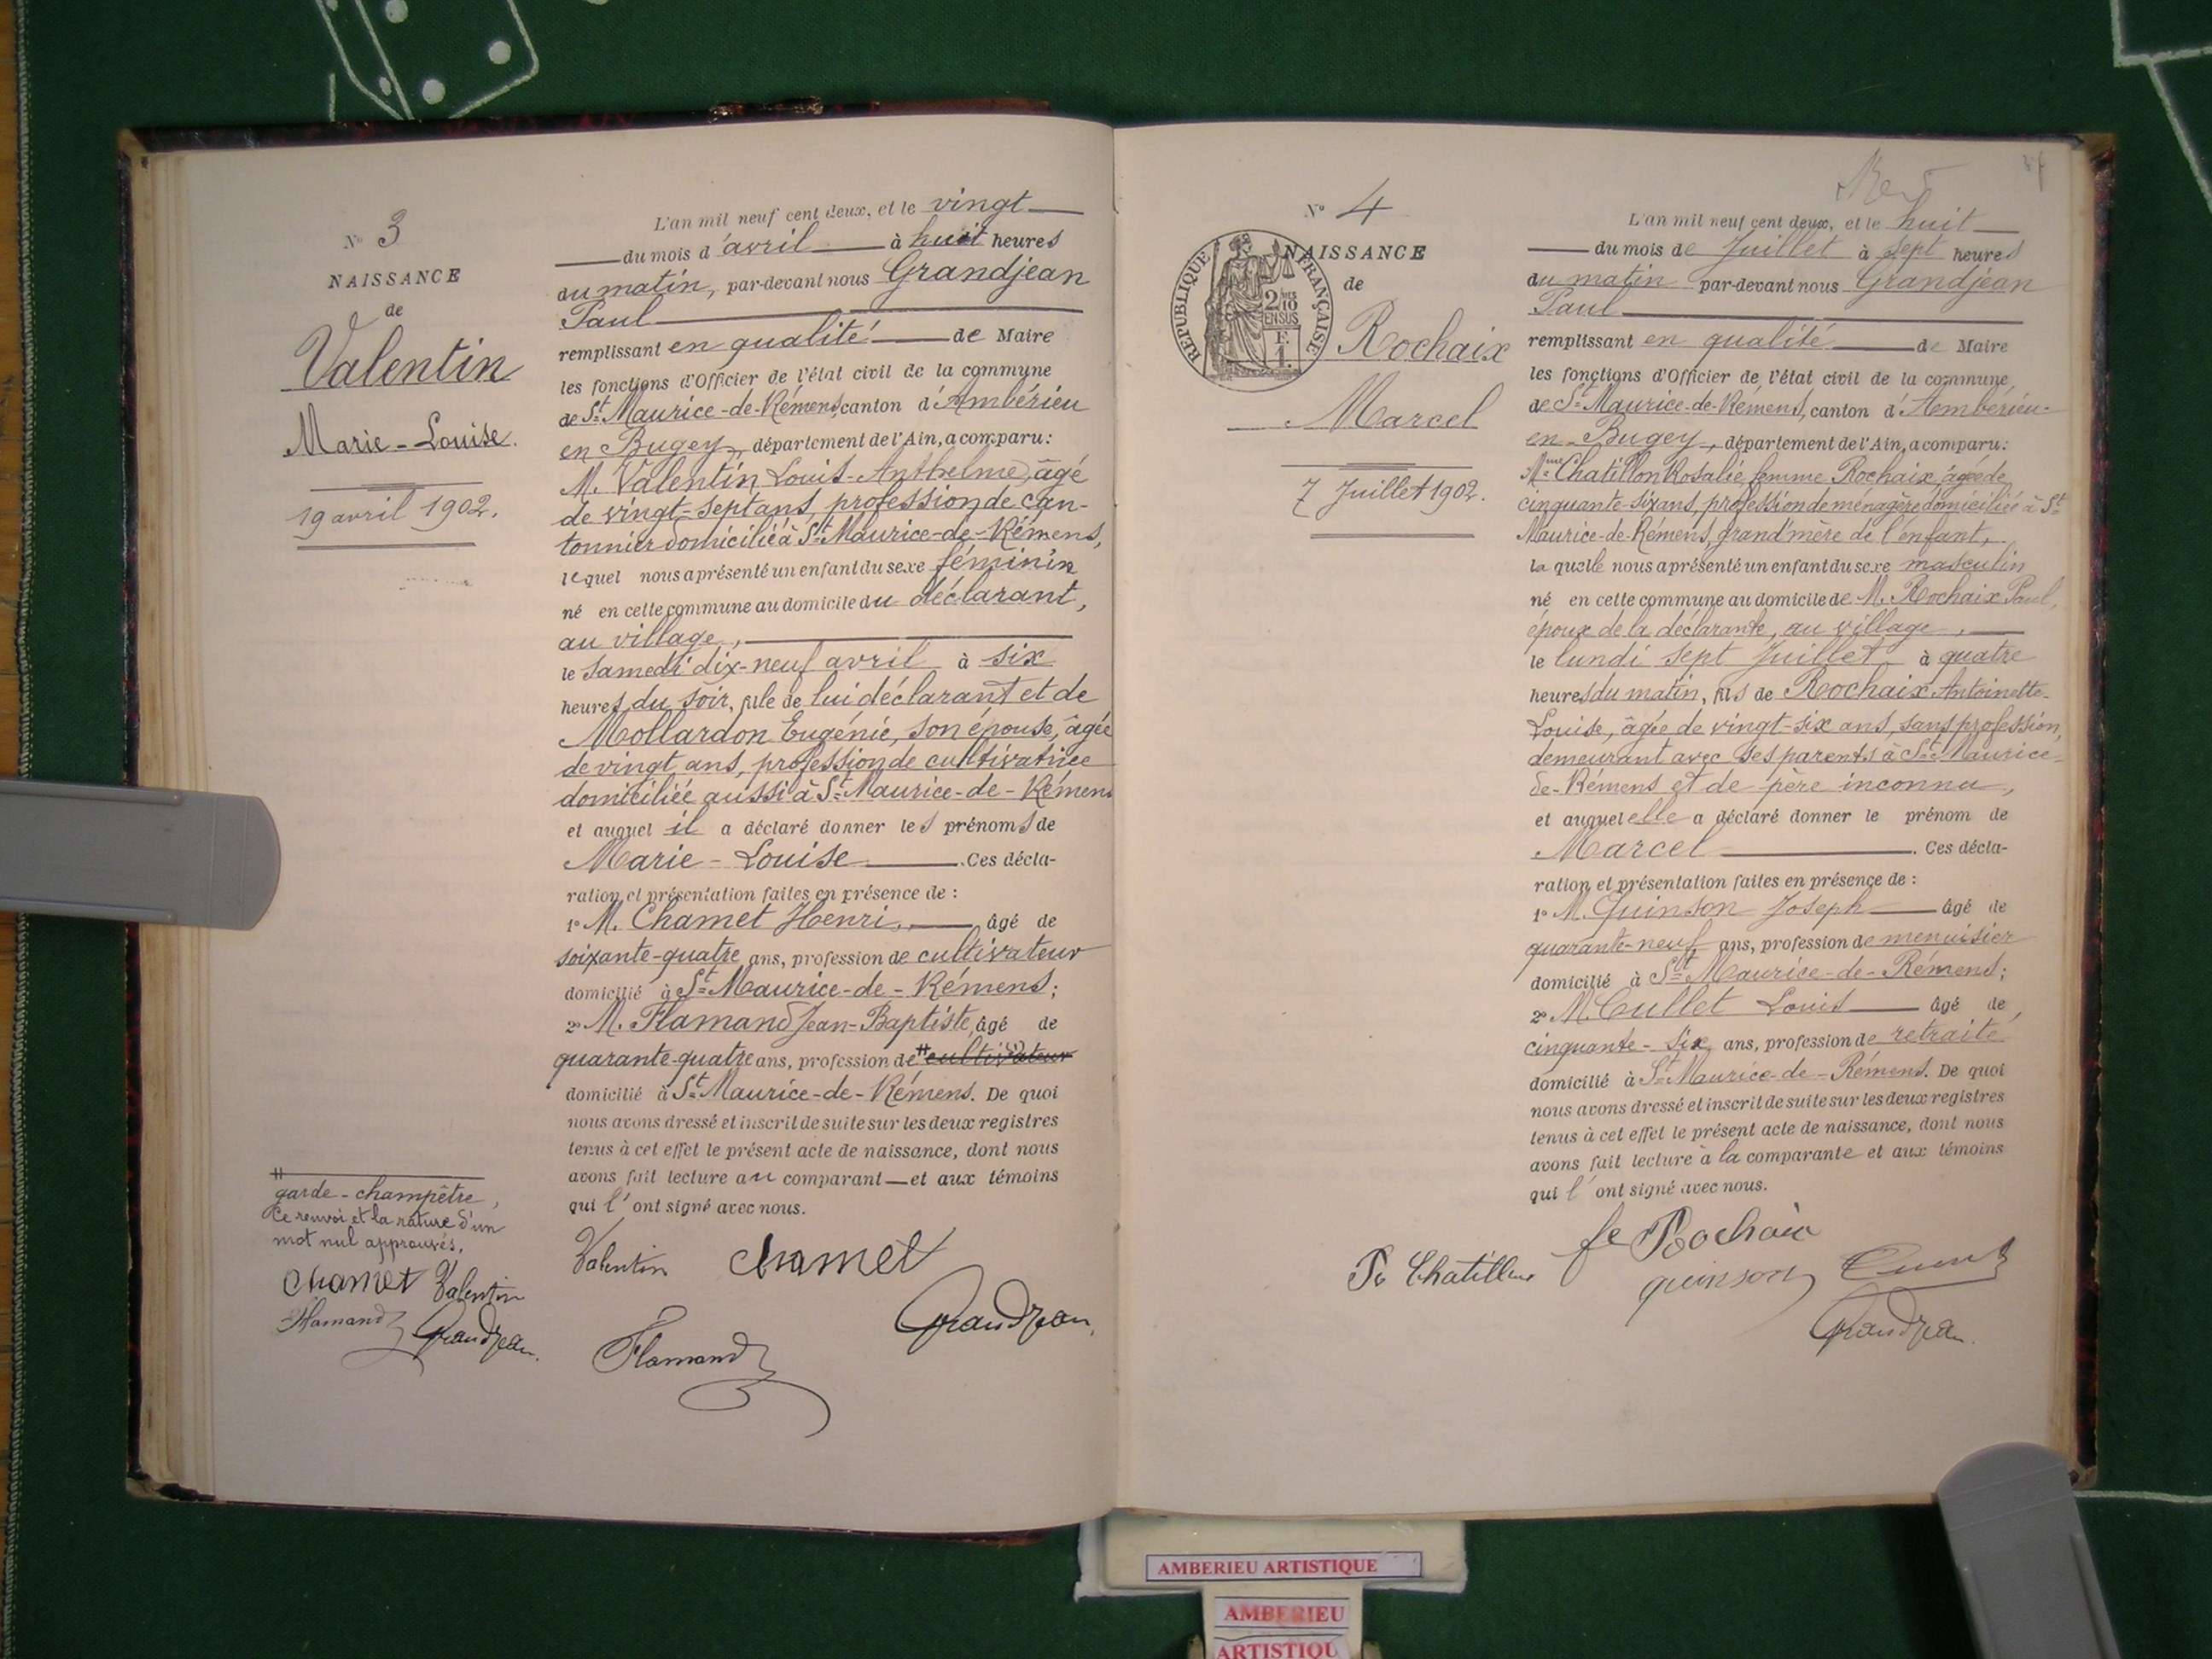 N° 3
NAISSANCE
de
Valentin
Marie-Louise.
19 avril 1902.
L'an mil neuf cent deux, et le vingt
du mois d'avril à huit heures
du matin, par-devant nous Grandjean
Paul
remplissant en qualité de Maire
les fonctions d'Officier de l'état civil de la commune
de St Maurice-de-Rémens, canton d'Ambérieu
en Bugey, département de l'Ain, a comparu:
M. Valentin Louis-Anthelme, âgé
de vingt-sept ans, profession de can-
tonnier domicilié à St Maurice-de-Rémens,
lequel nous a présenté un enfant du sexe féminin
né en cette commune au domicile du déclarant,
au village,
le samedi dix-neuf avril à six
heures du soir, fille de lui déclarant et de
Mollardon Eugénie, son épouse, âgée
de vingt ans, profession de cultivatrice
domiciliée aussi à St Maurice-de-Rémens
et auquel il a déclaré donner les prénoms de
Marie-Louise. Ces décla-
ration et présentation faites en présence de :
1° M. Chamet Henri, âgé de
soixante-quatre ans, profession de cultivateur
domicilié à St Maurice-de-Rémens;
2° M. Flamand Jean-Baptiste, âgé de
quarante-quatre ans, profession de # cultivateur
domicilié à St Maurice-de-Rémens. De quoi
nous avons dressé et inscrit de suite sur les deux registres
tenus à cet effet le présent acte de naissance, dont nous
avons fait lecture au comparant et aux témoins
qui l'ont signé avec nous.
#
garde-champêtre,
Ce renvoi et la rature d'un
mot nul approuvés.
Chamet Valentin
Flamand Grandjean.
Valentin Chamet
Grandjean.
Flamand
N° 4
NAISSANCE
de
RÉPUBLIQUE FRANÇAISE
2/10 EN SUS
F. 1.
Rochaix
Marcel
7 Juillet 1902.
L'an mil neuf cent deux, et le huit
du mois de Juillet à sept heures
du matin par-devant nous Grandjean
Paul
remplissant en qualité de Maire
les fonctions d'Officier de l'état civil de la commune
de St Maurice-de-Rémens, canton d'Ambérieu-
en-Bugey, département de l'Ain, a comparu:
Mme Chatillon Rosalie femme Rochaix, âgée de
cinquante-six ans, profession de ménagère domiciliée à St
Maurice-de-Rémens, grand'mère de l'enfant,
laquelle nous a présenté un enfant du sexe masculin
né en cette commune au domicile de M. Rochaix Paul,
époux de la déclarante, au village,
le lundi sept Juillet à quatre
heures du matin, fils de Rochaix Antoinette-
Louise, âgée de vingt-six ans, sans profession,
demeurant avec ses parents à St Maurice-
de-Rémens et de père inconnu,
et auquel elle a déclaré donner le prénom de
Marcel. Ces décla-
ration et présentation faites en présence de :
1° M. Quinson Joseph âgé de
quarante-neuf ans, profession de menuisier
domicilié à St Maurice-de-Rémens;
2° M. Cullet Louis âgé de
cinquante-six ans, profession de retraité
domicilié à St Maurice-de-Rémens. De quoi
nous avons dressé et inscrit de suite sur les deux registres
tenus à cet effet le présent acte de naissance, dont nous
avons fait lecture à la comparante et aux témoins
qui l'ont signé avec nous.
Chatillon fe Rochaix
quinson
Grandjean.
AMBERIEU ARTISTIQUE
AMBERIEU
ARTISTIQU